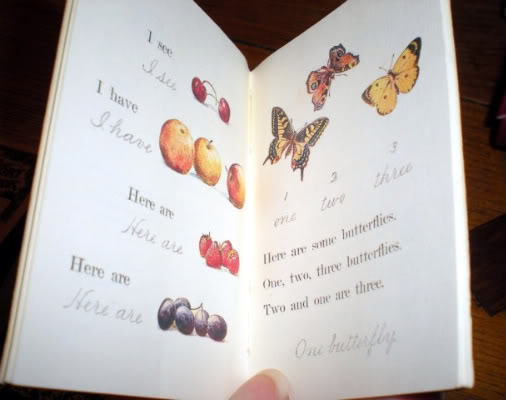 I see
I see
I have
I have
Here are
Here are
Here are
Here are
1 2 3
one two three
Here are some butterflies.
One, two, three butterflies.
Two and one are three.
One butterfly.